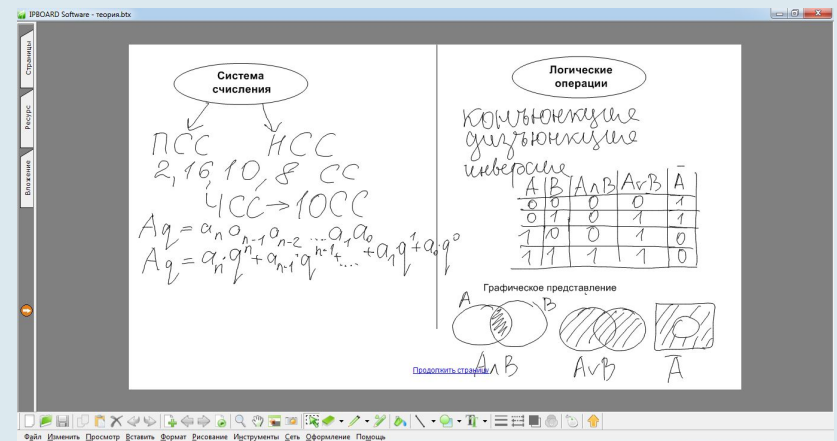 IPBOARD Software - теория.btx
Страницы
Ресурс
Вложение
Система
счисления
ПСС НСС
2, 16, 10, 8 СС
ЧСС → 10СС
Aq = aₙ aₙ₋₁ aₙ₋₂ ... a₁ a₀
Aq = aₙ·qⁿ + aₙ₋₁·qⁿ⁻¹ + ... + a₁q¹ + a₀·q⁰
Логические
операции
конъюнкция
дизъюнкция
инверсия
A B A∧B A∨B Ā
0 0 0 0 1
0 1 0 1 1
1 0 0 1 0
1 1 1 1 0
Графическое представление
A B
A∧B A∨B Ā
Продолжить страницу
Файл Изменить Просмотр Вставить Формат Рисование Инструменты Сеть Оформление Помощь